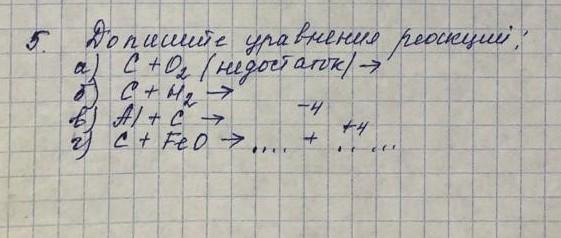 5. Допишите уравнения реакций:
а) C + O2 (недостаток) →
б) C + H2 →
в) Al + C → -4
г) C + FeO → .... + +4 .. ...